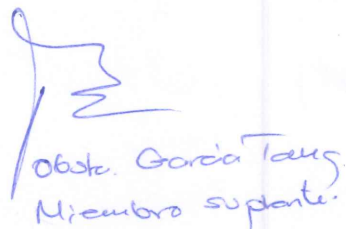 Obsta. García Tang.
Miembro suplente.